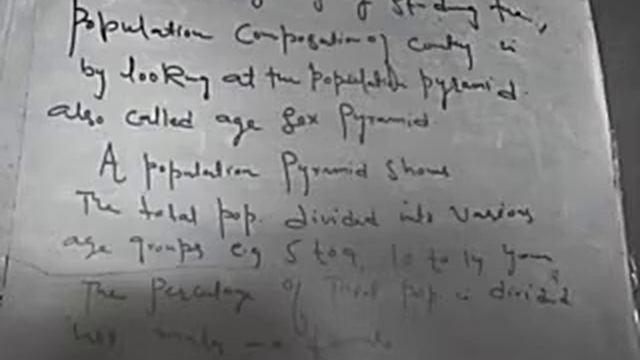 of studying the,
population Composition of country is
by looking at the population pyramid.
also called age sex Pyramid.
A population Pyramid shows
The total pop. divided into various
age groups e.g 5 to 9, 10 to 14 years
The Percentage of Total pop is divided
into males and females